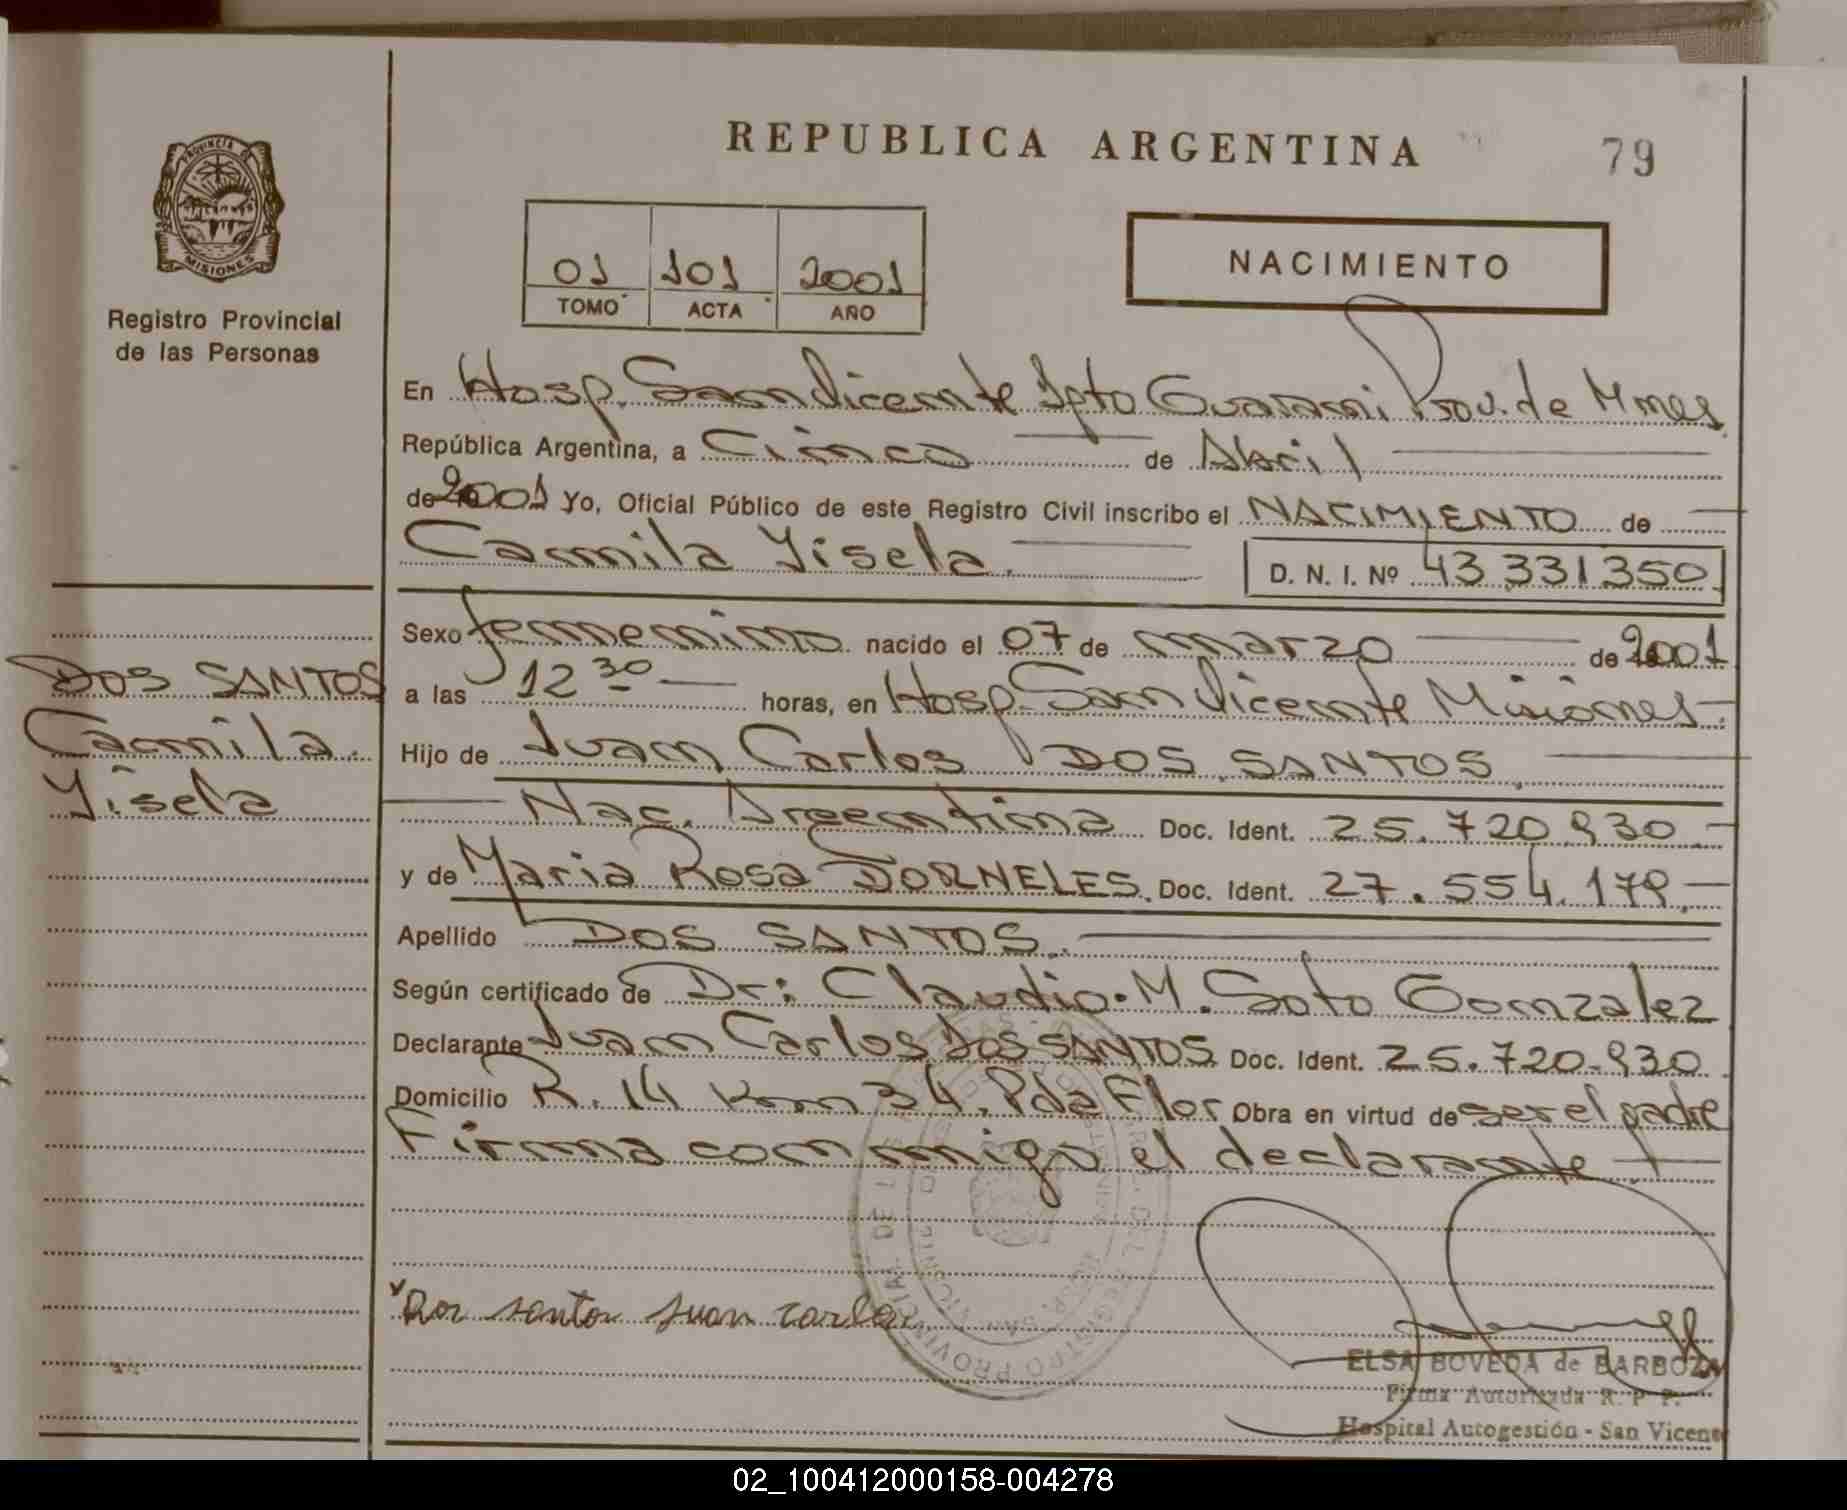 REPUBLICA ARGENTINA
79
PROVINCIA DE
MISIONES
Registro Provincial
de las Personas
01 101 2001
TOMO ACTA AÑO
NACIMIENTO
En Hosp. San Vicente Dpto Guarani Prov. de Mnes
República Argentina, a Cinco de Abril
de 2001 Yo, Oficial Público de este Registro Civil inscribo el NACIMIENTO de
Camila Yisela. D. N. I. Nº 43.331350
Sexo femenino nacido el 07 de marzo de 2001
a las 12 30 horas, en Hosp. San Vicente Misiones
Hijo de Juan Carlos DOS SANTOS
Nac. Argentina Doc. Ident. 25.720.930
y de Maria Rosa DORNELES. Doc. Ident. 27.554.179
Apellido DOS SANTOS.
Según certificado de Dr: Claudio. M. Soto Gonzalez
Declarante Juan Carlos DOS SANTOS Doc. Ident. 25.720.930
Domicilio R. 14 Km 34. Pda Flor Obra en virtud de ser el padre
Firma conmigo el declarante
DOS SANTOS
Camila.
Yisela
Dos santos juan carlos
ELSA BOVEDA de BARBOZA
Firma Autorizada R. P. P.
Hospital Autogestión - San Vicente
02_100412000158-004278